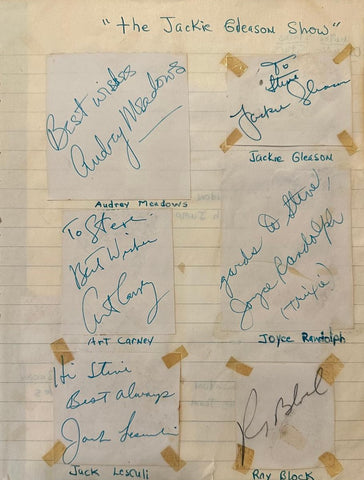 "The Jackie Gleason Show"
Best wishes
Audrey Meadows
Audrey Meadows
To
Steve
Jackie Gleason
Jackie Gleason
To Steve
Best Wishes
Art Carney
Art Carney
gards to Steve,
Joyce Randolph
(Trixie)
Joyce Randolph
Hi Steve
Best always
Jack Lesculi
Jack Lesculi
Ray Bloch
Ray Block